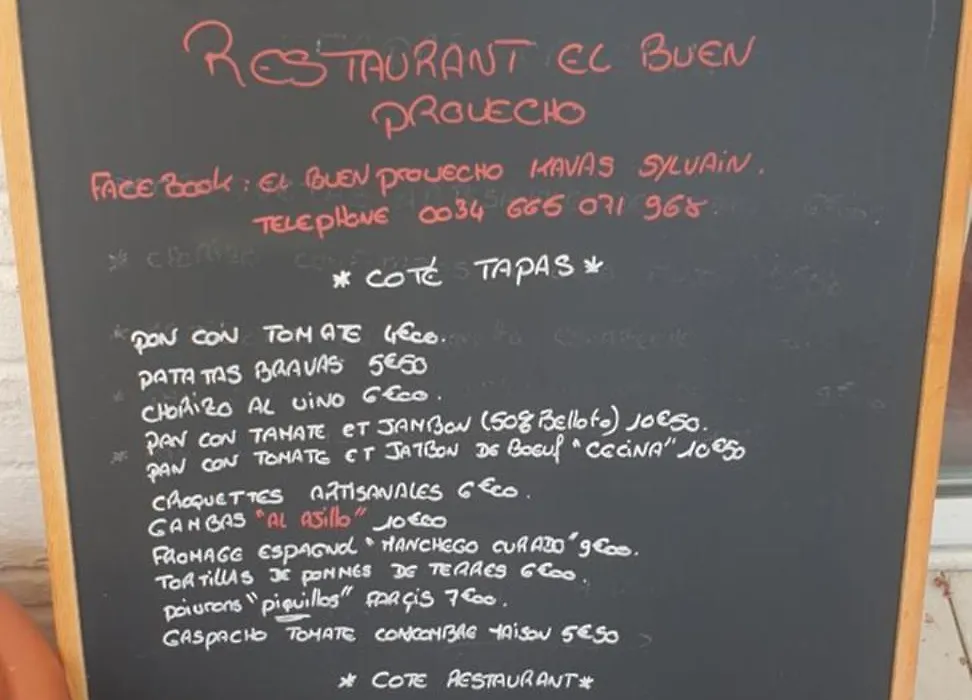 RESTAURANT EL BUEN
PROVECHO
FACE BOOK : EL BUEN PROVECHO MAVAS SYLVAIN.
TELEPHONE 0034 665 071 968.
* COTÉ TAPAS *
PAN CON TOMATE 4€00.
PATATAS BRAVAS 5€50
CHORIZO AL VINO 6€00.
PAN CON TAMATE ET JAMBON (50g Bellota) 10€50.
PAN CON TOMATE ET JATBON DE BOEUF "CECINA" 10€50
CROQUETTES ARTISANALES 6€00.
GAMBAS "AL AJILLO" 10€00
FROMAGE ESPAGNOL "MANCHEGO CURADO" 9€00.
TORTILLAS DE POMMES DE TERRES 6€00.
POIVRONS "PIQUILLOS" FARÇIS 7€00.
GASPACHO TOMATE CONCOMBRE MAISON 5€50
* COTE RESTAURANT *